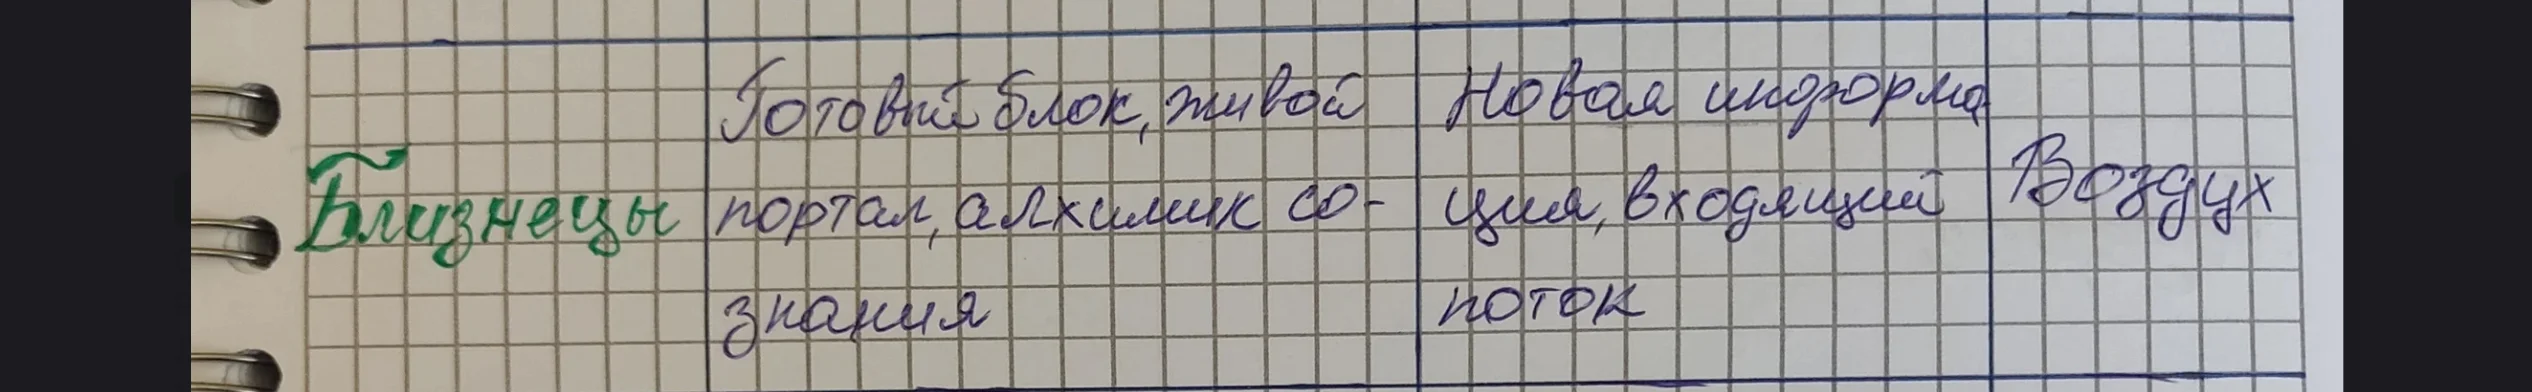 Близнецы
Готовый блок, живой
портал, алхимик со-
знания
Новая информа
ция, входящий
поток
Воздух